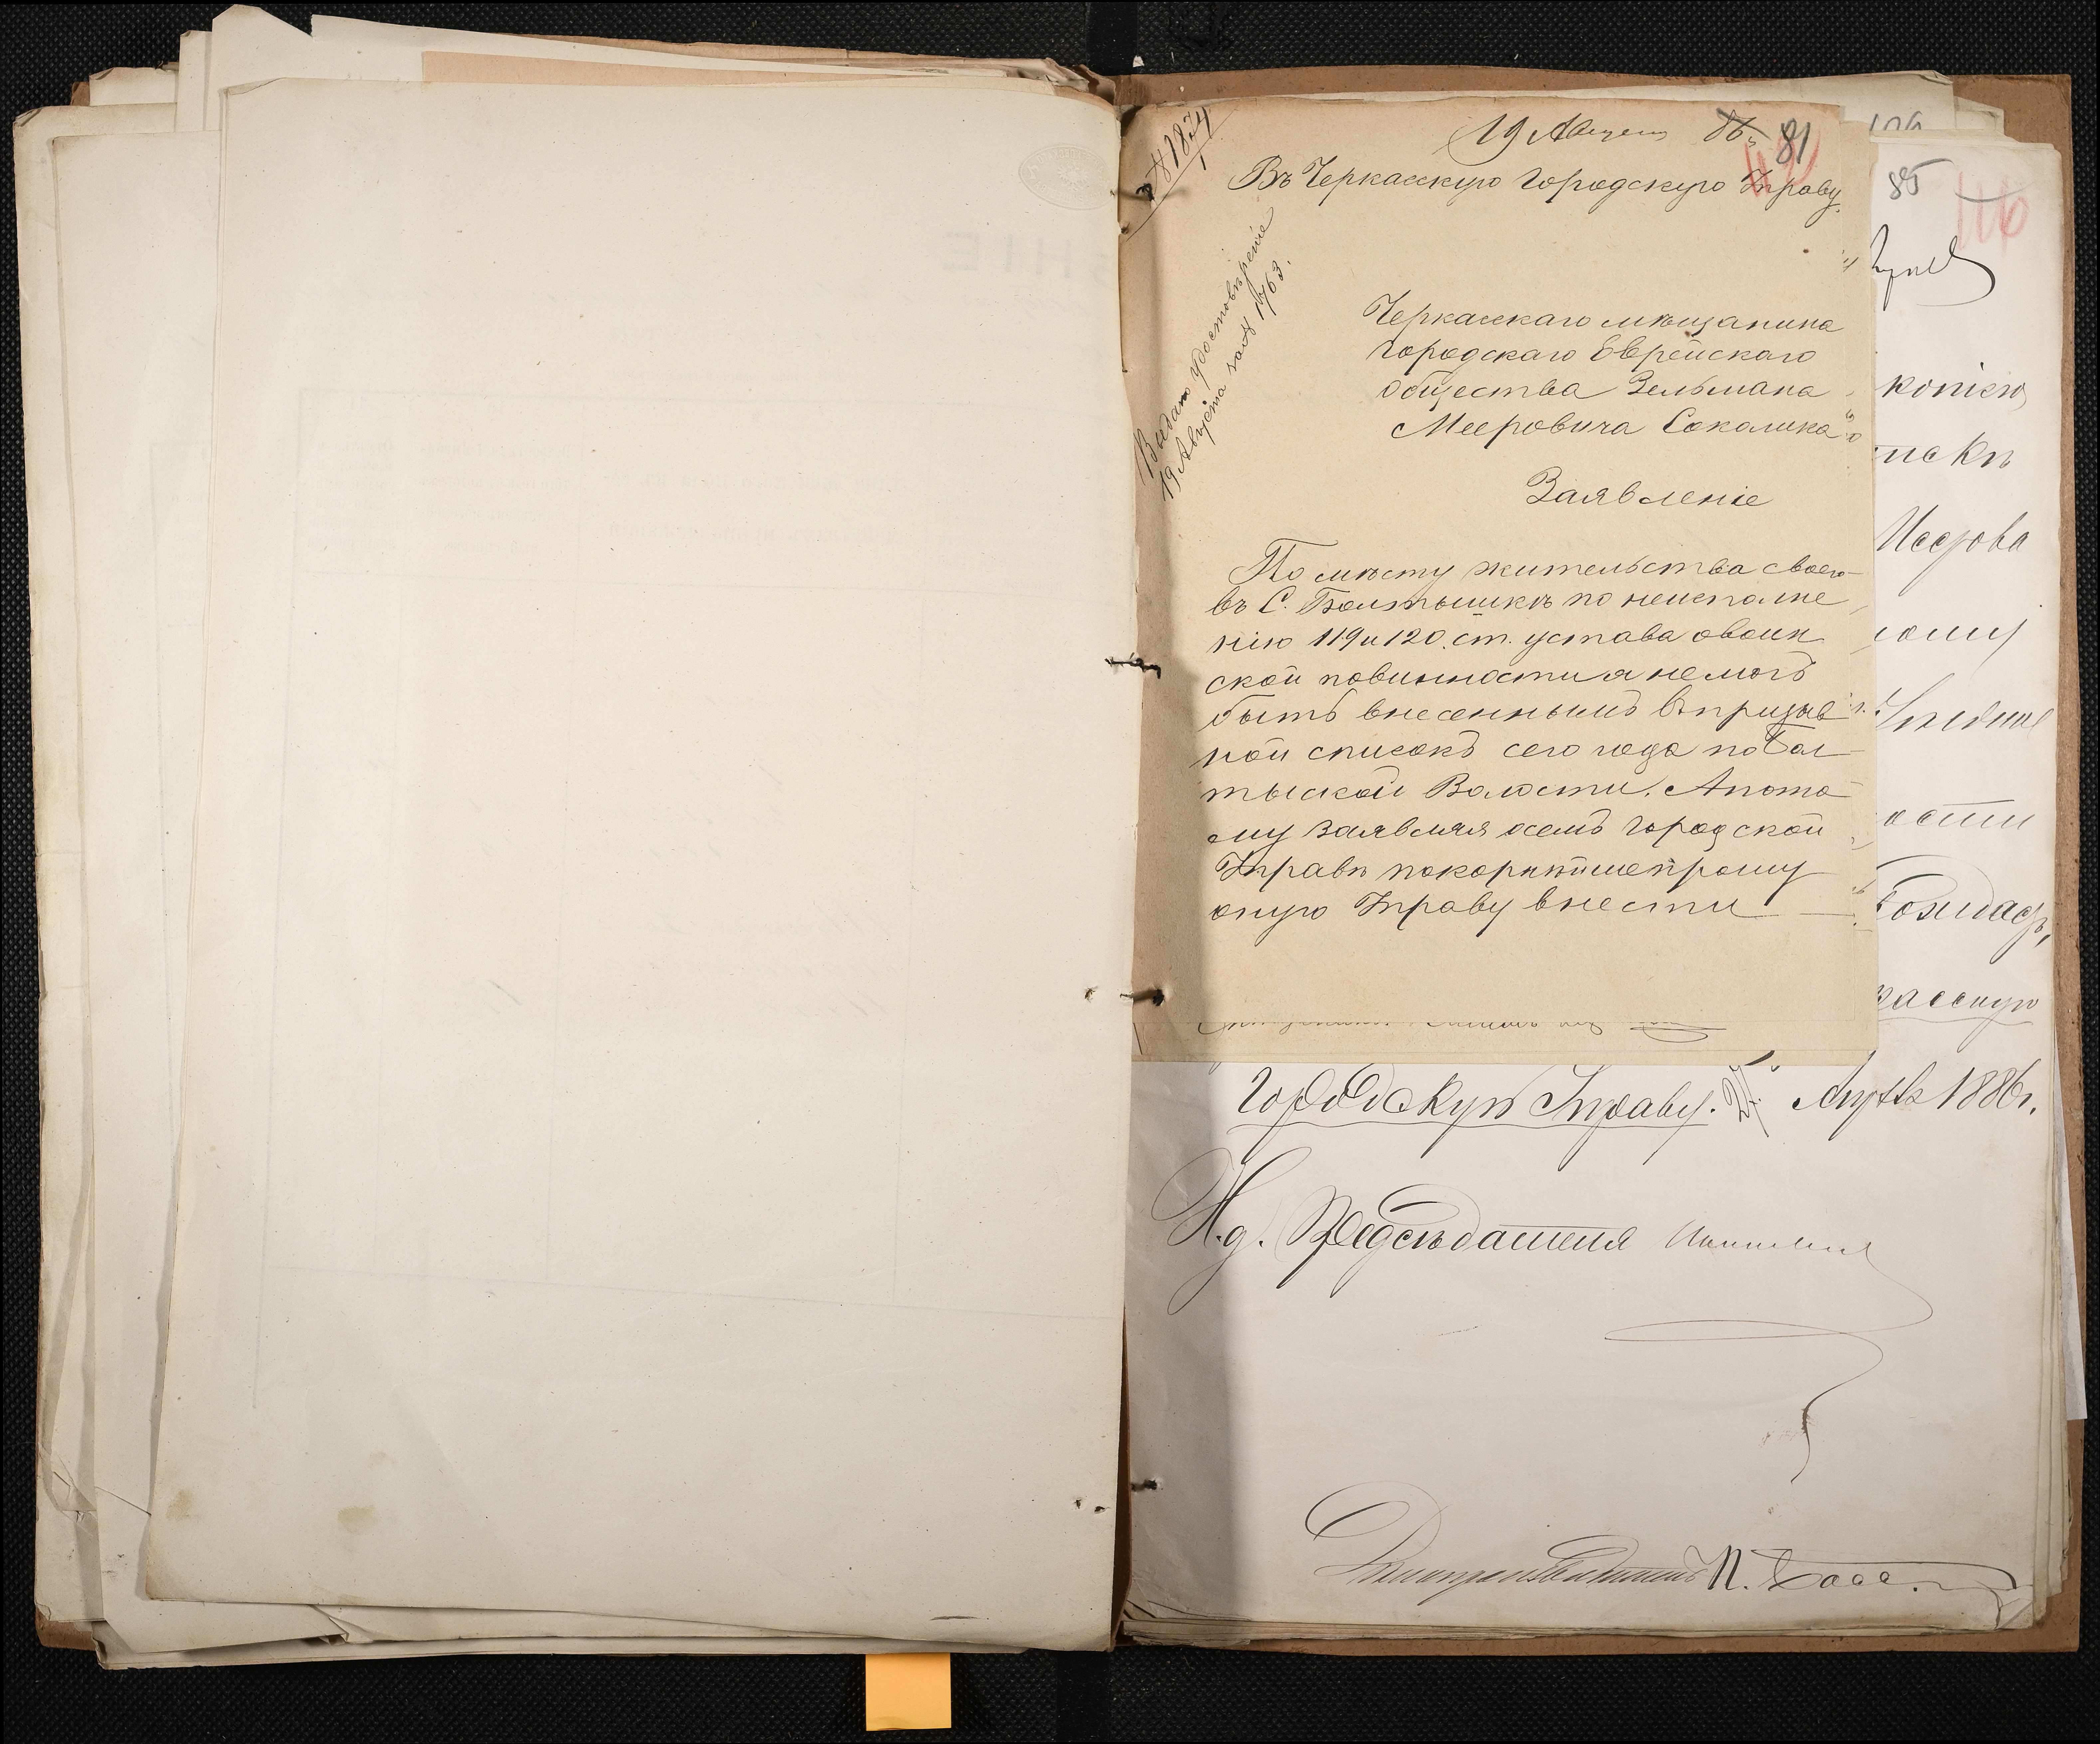 № 1874
19 Августа 86 г. 81
Въ Черкасскую Городскую Управу.
Выдано удостовѣреніе
19 Августа за № 1763.
Черкасскаго мѣщанина
городскаго Еврейскаго
общества Зельмана
Мееровича Соколика
Заявленіе
По мѣсту жительства своего
въ С. Болтышкѣ по неисполне
нію 119 и 120. ст. устава овоин
ской повинности я немогъ
быть внесеннымъ въ призыв
ной списокъ сего года по Бол
тыской Волости. Апото
му заявляя осемъ Городской
Управѣ покорнѣйше прошу
оную Управу внести
85
116
копію
Мееρова
Городскую Управу. 27 Апрѣля 1886 г.
И.д. Предсѣдателя
Дѣлопроизводитель П.